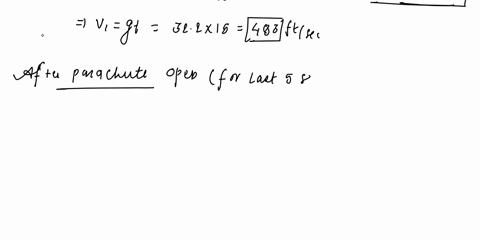 ⇒ V₁ = gt = 32.2 × 15 = 483 ft/sec
After parachute open (for last 5 s